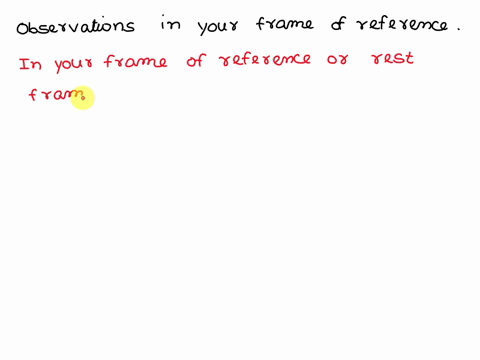 Observations in your frame of reference.
In your frame of reference or rest
fram